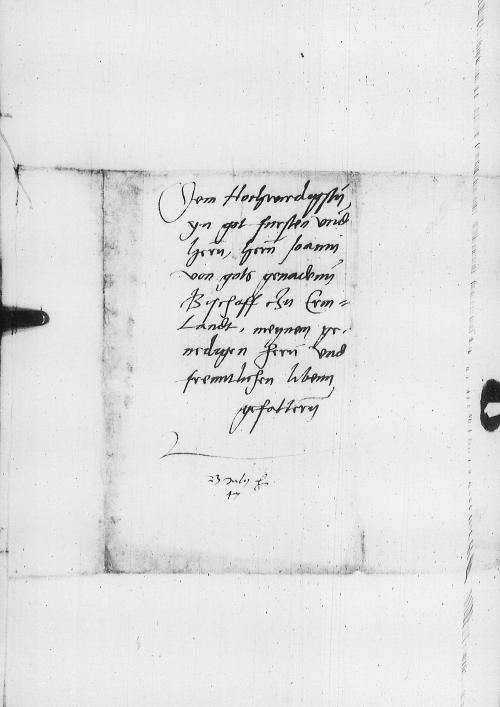 Dem Hochwirdigsten
yn got fursten und
hern, hern Joanni
von gots genaden
Bischoff czu Erm=
landt, meynen ge-
nedigen hern und
freuntlichen liben
gefattern
23 July